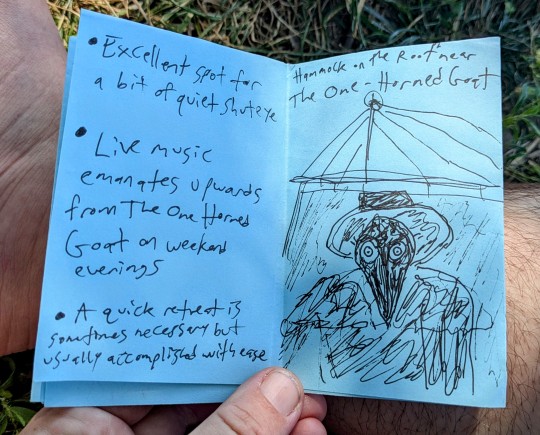 • Excellent spot for
a bit of quiet shuteye
• Live music
emanates upwards
from The One Horned
Goat on weekend
evenings
• A quick retreat is
sometimes necessary but
usually accomplished with ease
Hammock on the Roof near
The One-Horned Goat